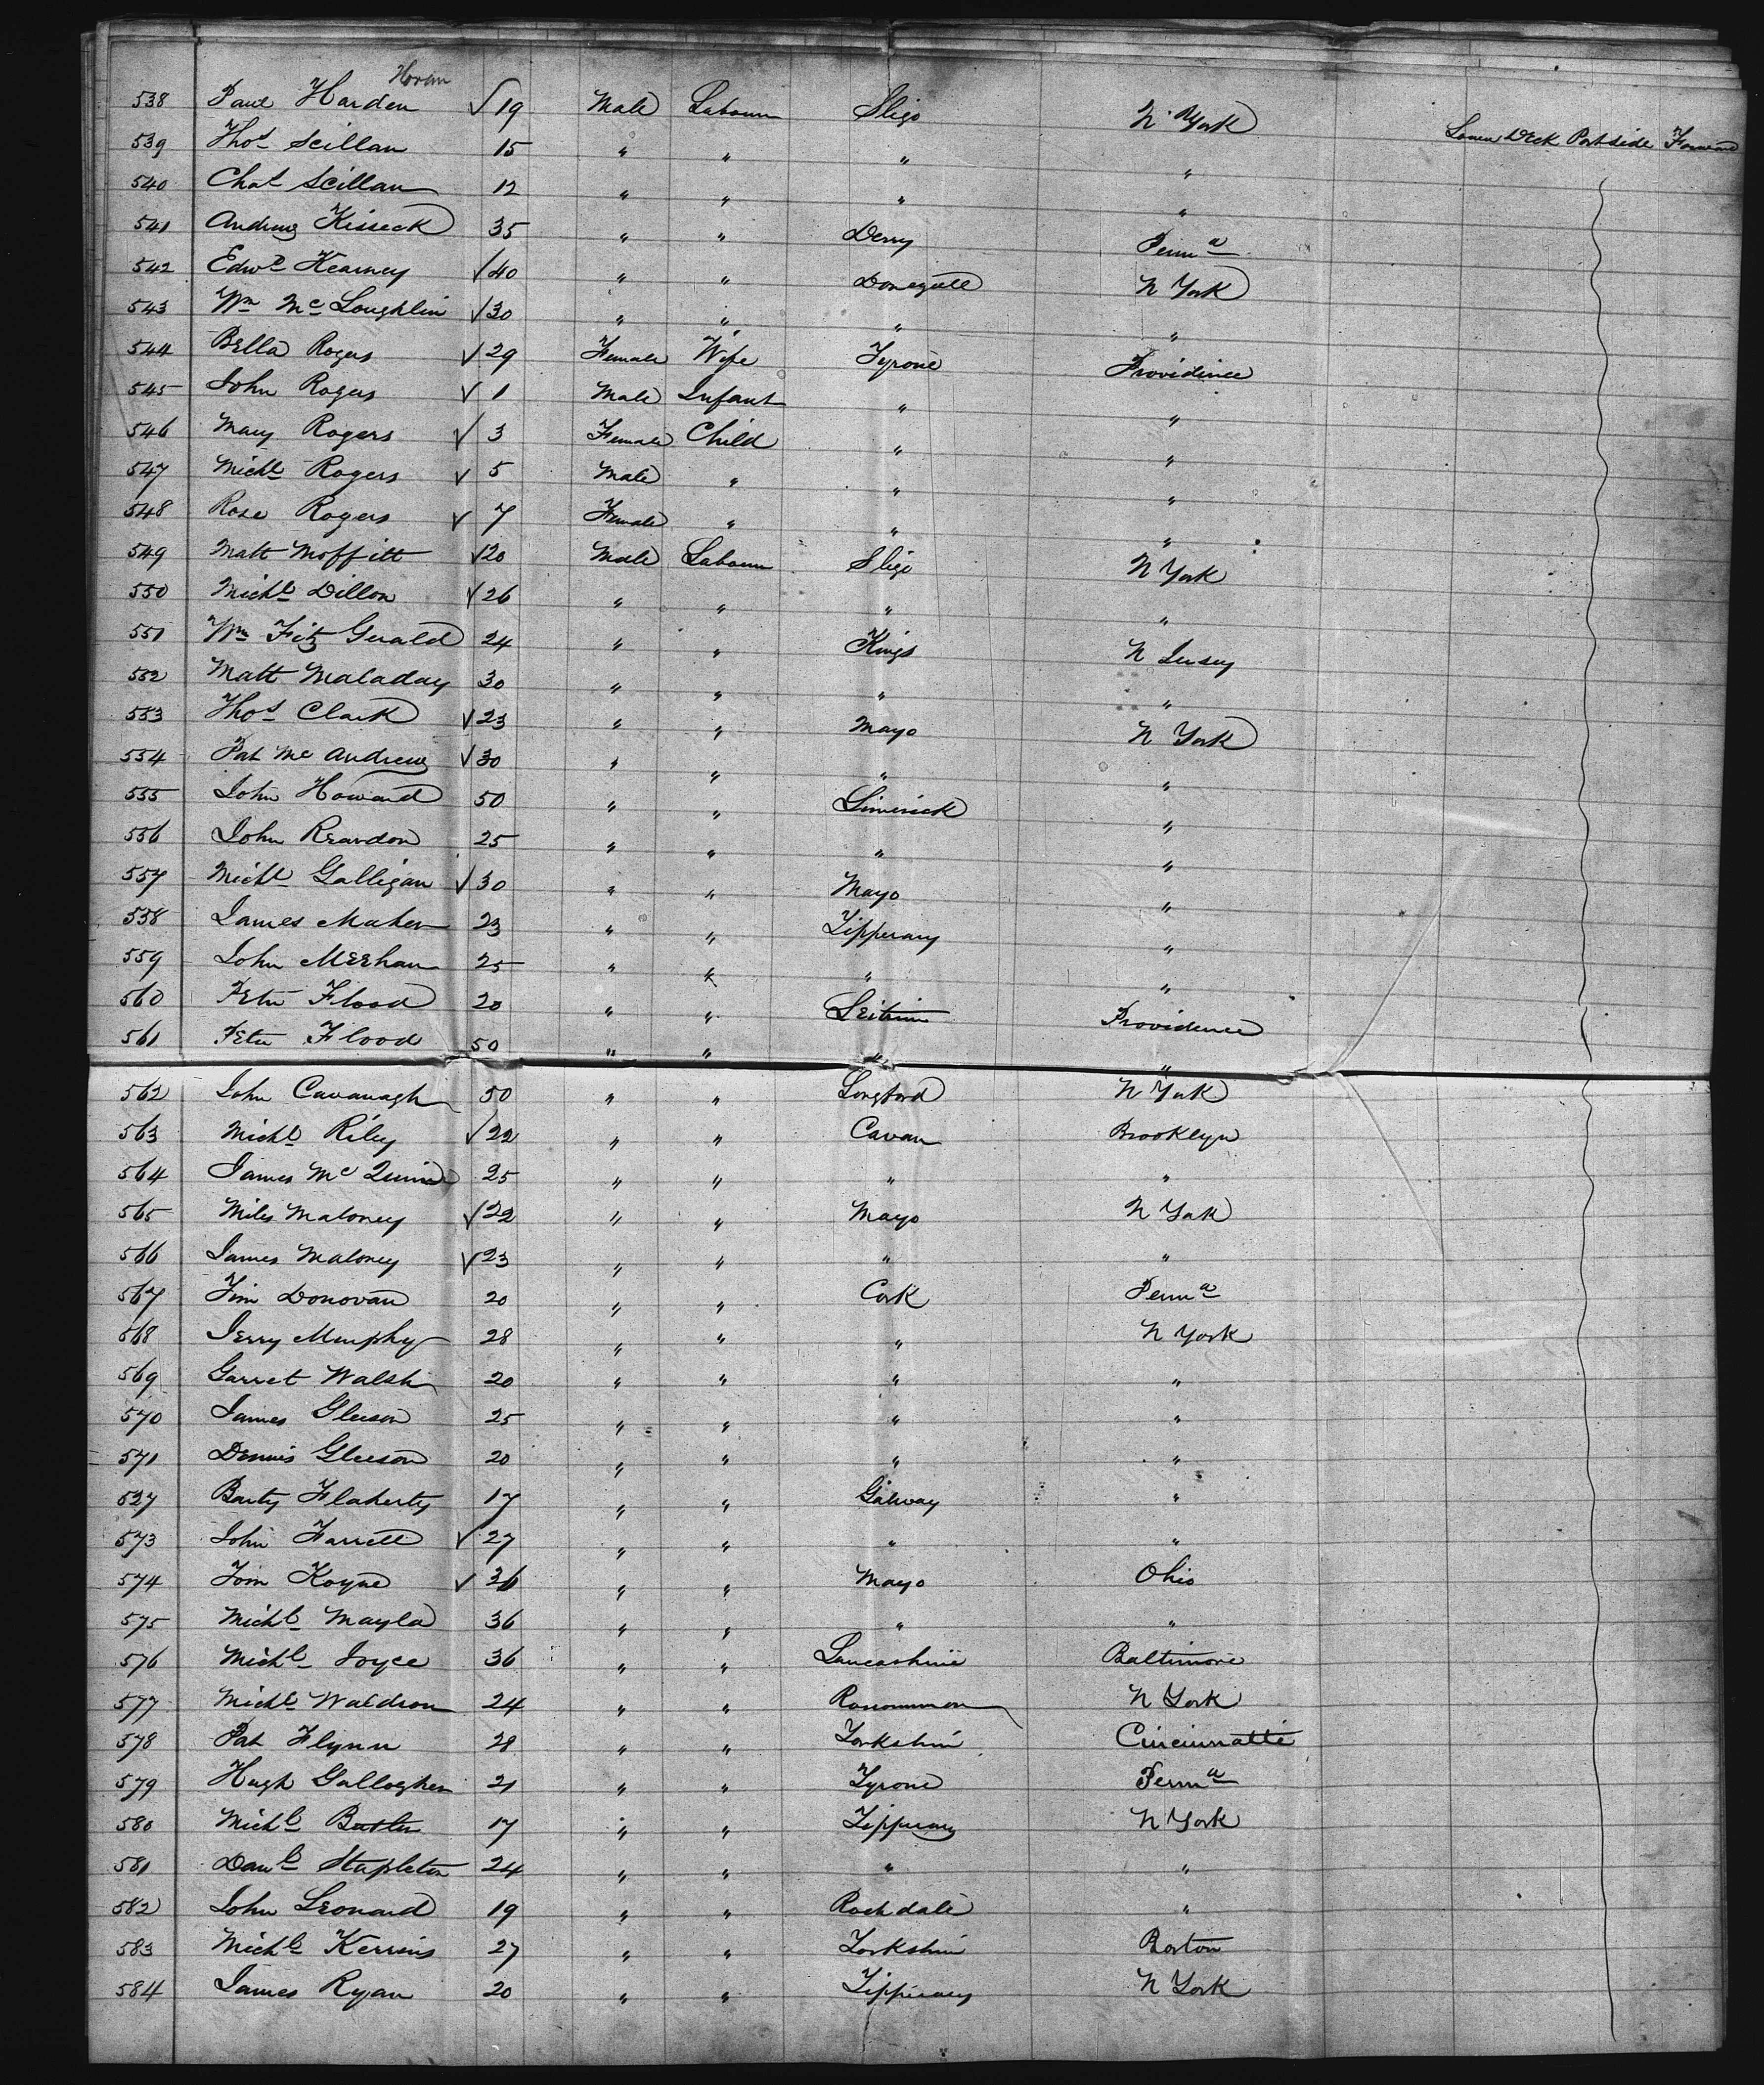 538 Paul Harden Horan √ 19 Male Labourer Sligo N. York Lower Deck Portside Forward
539 Thos Scillan 15 " " " "
540 Chas Scillan 12 " " " "
541 Andrew Kisseck 35 " " Derry Penna
542 Edwd Kearney √ 40 " " Donegall N York
543 Wm Mc Loughlin √ 30 " " " "
544 Bella Rogers √ 29 Female Wife Tyrone Providence
545 John Rogers √ 1 Male Infant " "
546 Mary Rogers √ 3 Female Child " "
547 Michl Rogers √ 5 Male " " "
548 Rose Rogers √ 7 Female " " "
549 Matt Moffitt √ 20 Male Labourer Sligo N York
550 Michl Dillon √ 26 " " " "
551 Wm Fitz Gerald 24 " " Kings N Jersey
552 Matt Maladay 30 " " " "
553 Thos Clark √ 23 " " Mayo N York
554 Pat Mc Andrew √ 30 " " " "
555 John Howard 50 " " Limerick "
556 John Reardon 25 " " " "
557 Michl Galligan √ 30 " " Mayo "
558 James Maher 23 " " Tipperary "
559 John Meehan 25 " " " "
560 Peter Flood 20 " " Leitrim Providence
561 Peter Flood 50 " " " "
562 John Cavanagh 50 " " Longford N York
563 Michl Riley √ 22 " " Cavan Brooklyn
564 James Mc Quinn 25 " " " "
565 Miles Maloney √ 22 " " Mayo N York
566 James Maloney √ 23 " " " "
567 Tim Donovan 20 " " Cork Penna
568 Jerry Murphy 28 " " " N York
569 Garret Walsh 20 " " " "
570 James Gleeson 25 " " " "
571 Dennis Gleeson 20 " " " "
527 Barty Flaherty 17 " " Galway "
573 John Farrell √ 27 " " " "
574 Tom Koyne √ 36 " " Mayo Ohio
575 Michl Mayla 36 " " " "
576 Michl Joyce 36 " " Lancashire Baltimore
577 Michl Waldron 24 " " Roscommon N York
578 Pat Flynn 28 " " Yorkshire Cincinnatti
579 Hugh Gallogher 21 " " Tyrone Penna
580 Michl Butler 17 " " Tipperary N York
581 Danl Stapleton 24 " " " "
582 John Leonard 19 " " Rochdale "
583 Michl Kerrins 27 " " Yorkshire Boston
584 James Ryan 20 " " Tipperary N York